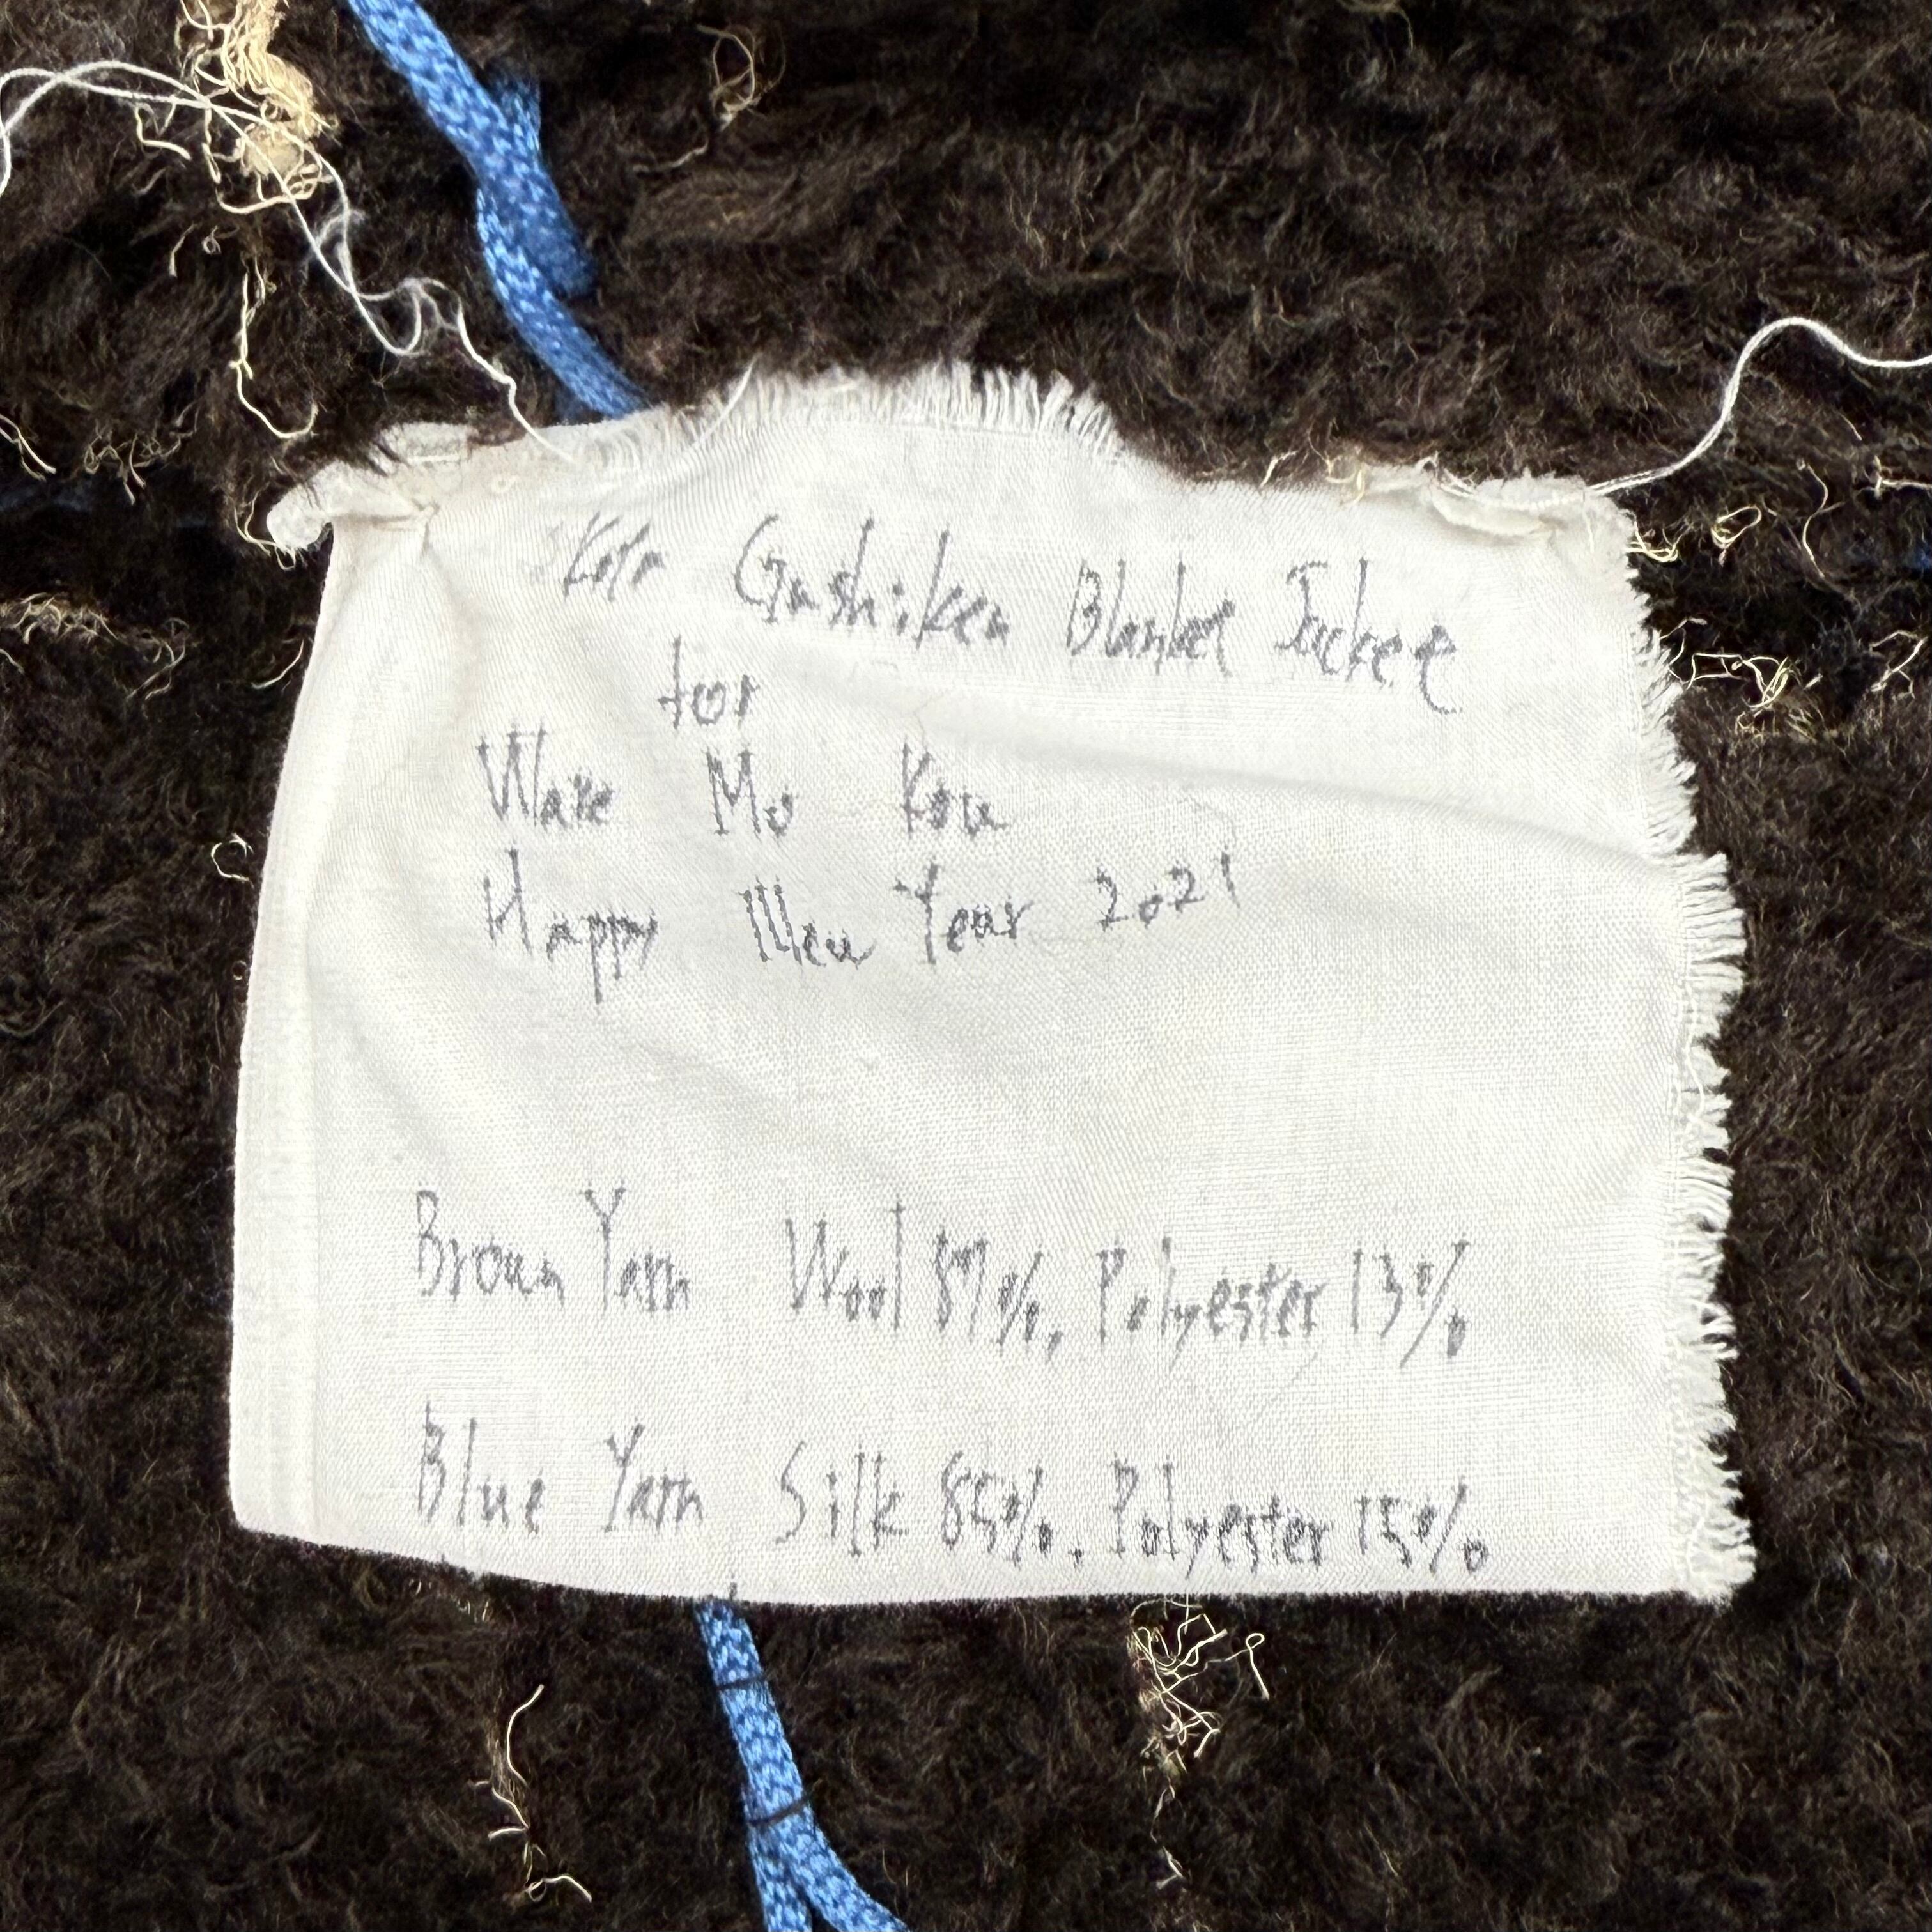 Kota Gushiken Blanket Jacket
for
Wake Mo Kou
Happy New Year 2021
Brown Yarn Wool 87%, Polyester 13%
Blue Yarn Silk 85%, Polyester 15%